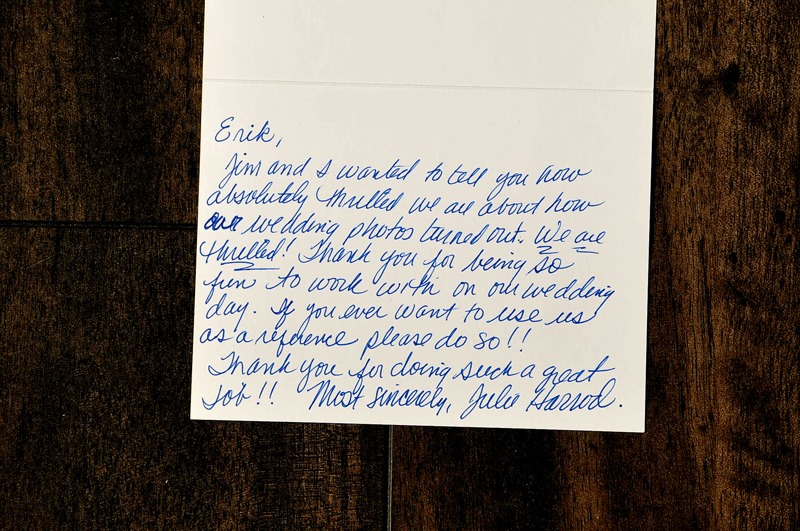 Erik,
Jim and I wanted to tell you how
absolutely thrilled we are about how
our wedding photos turned out. We are
thrilled! Thank you for being so
fun to work with on our wedding
day. If you ever want to use us
as a reference please do so!!
Thank you for doing such a great
job!! Most sincerely, Julie Harrod.